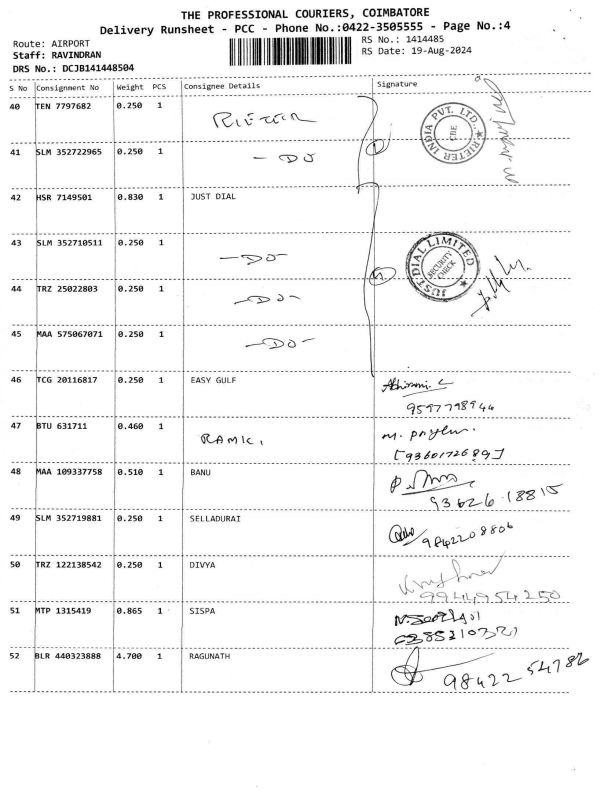 THE PROFESSIONAL COURIERS, COIMBATORE
Delivery Runsheet - PCC - Phone No.:0422-3505555 - Page No.:4
Route: AIRPORT
RS No.: 1414485
Staff: RAVINDRAN
RS Date: 19-Aug-2024
DRS No.: DCJB141448504
S No Consignment No Weight PCS Consignee Details Signature
40 TEN 7797682 0.250 1 RIETER
RIETER INDIA PVT. LTD. CBE
41 SLM 352722965 0.250 1 - DO
42 HSR 7149501 0.830 1 JUST DIAL
43 SLM 352710511 0.250 1 - DO -
JUST DIAL LIMITED SECURITY CHECK
44 TRZ 25022803 0.250 1 - DO -
45 MAA 575067071 0.250 1 - DO -
46 TCG 20116817 0.250 1 EASY GULF
9597798944
47 BTU 631711 0.460 1 RAMKI,
[9360172689]
48 MAA 109337758 0.510 1 BANU
93626 18815
49 SLM 352719881 0.250 1 SELLADURAI
9842208806
50 TRZ 122138542 0.250 1 DIVYA
9944954250
51 MTP 1315419 0.865 1 SISPA
52 BLR 440323888 4.700 1 RAGUNATH
98422 54786